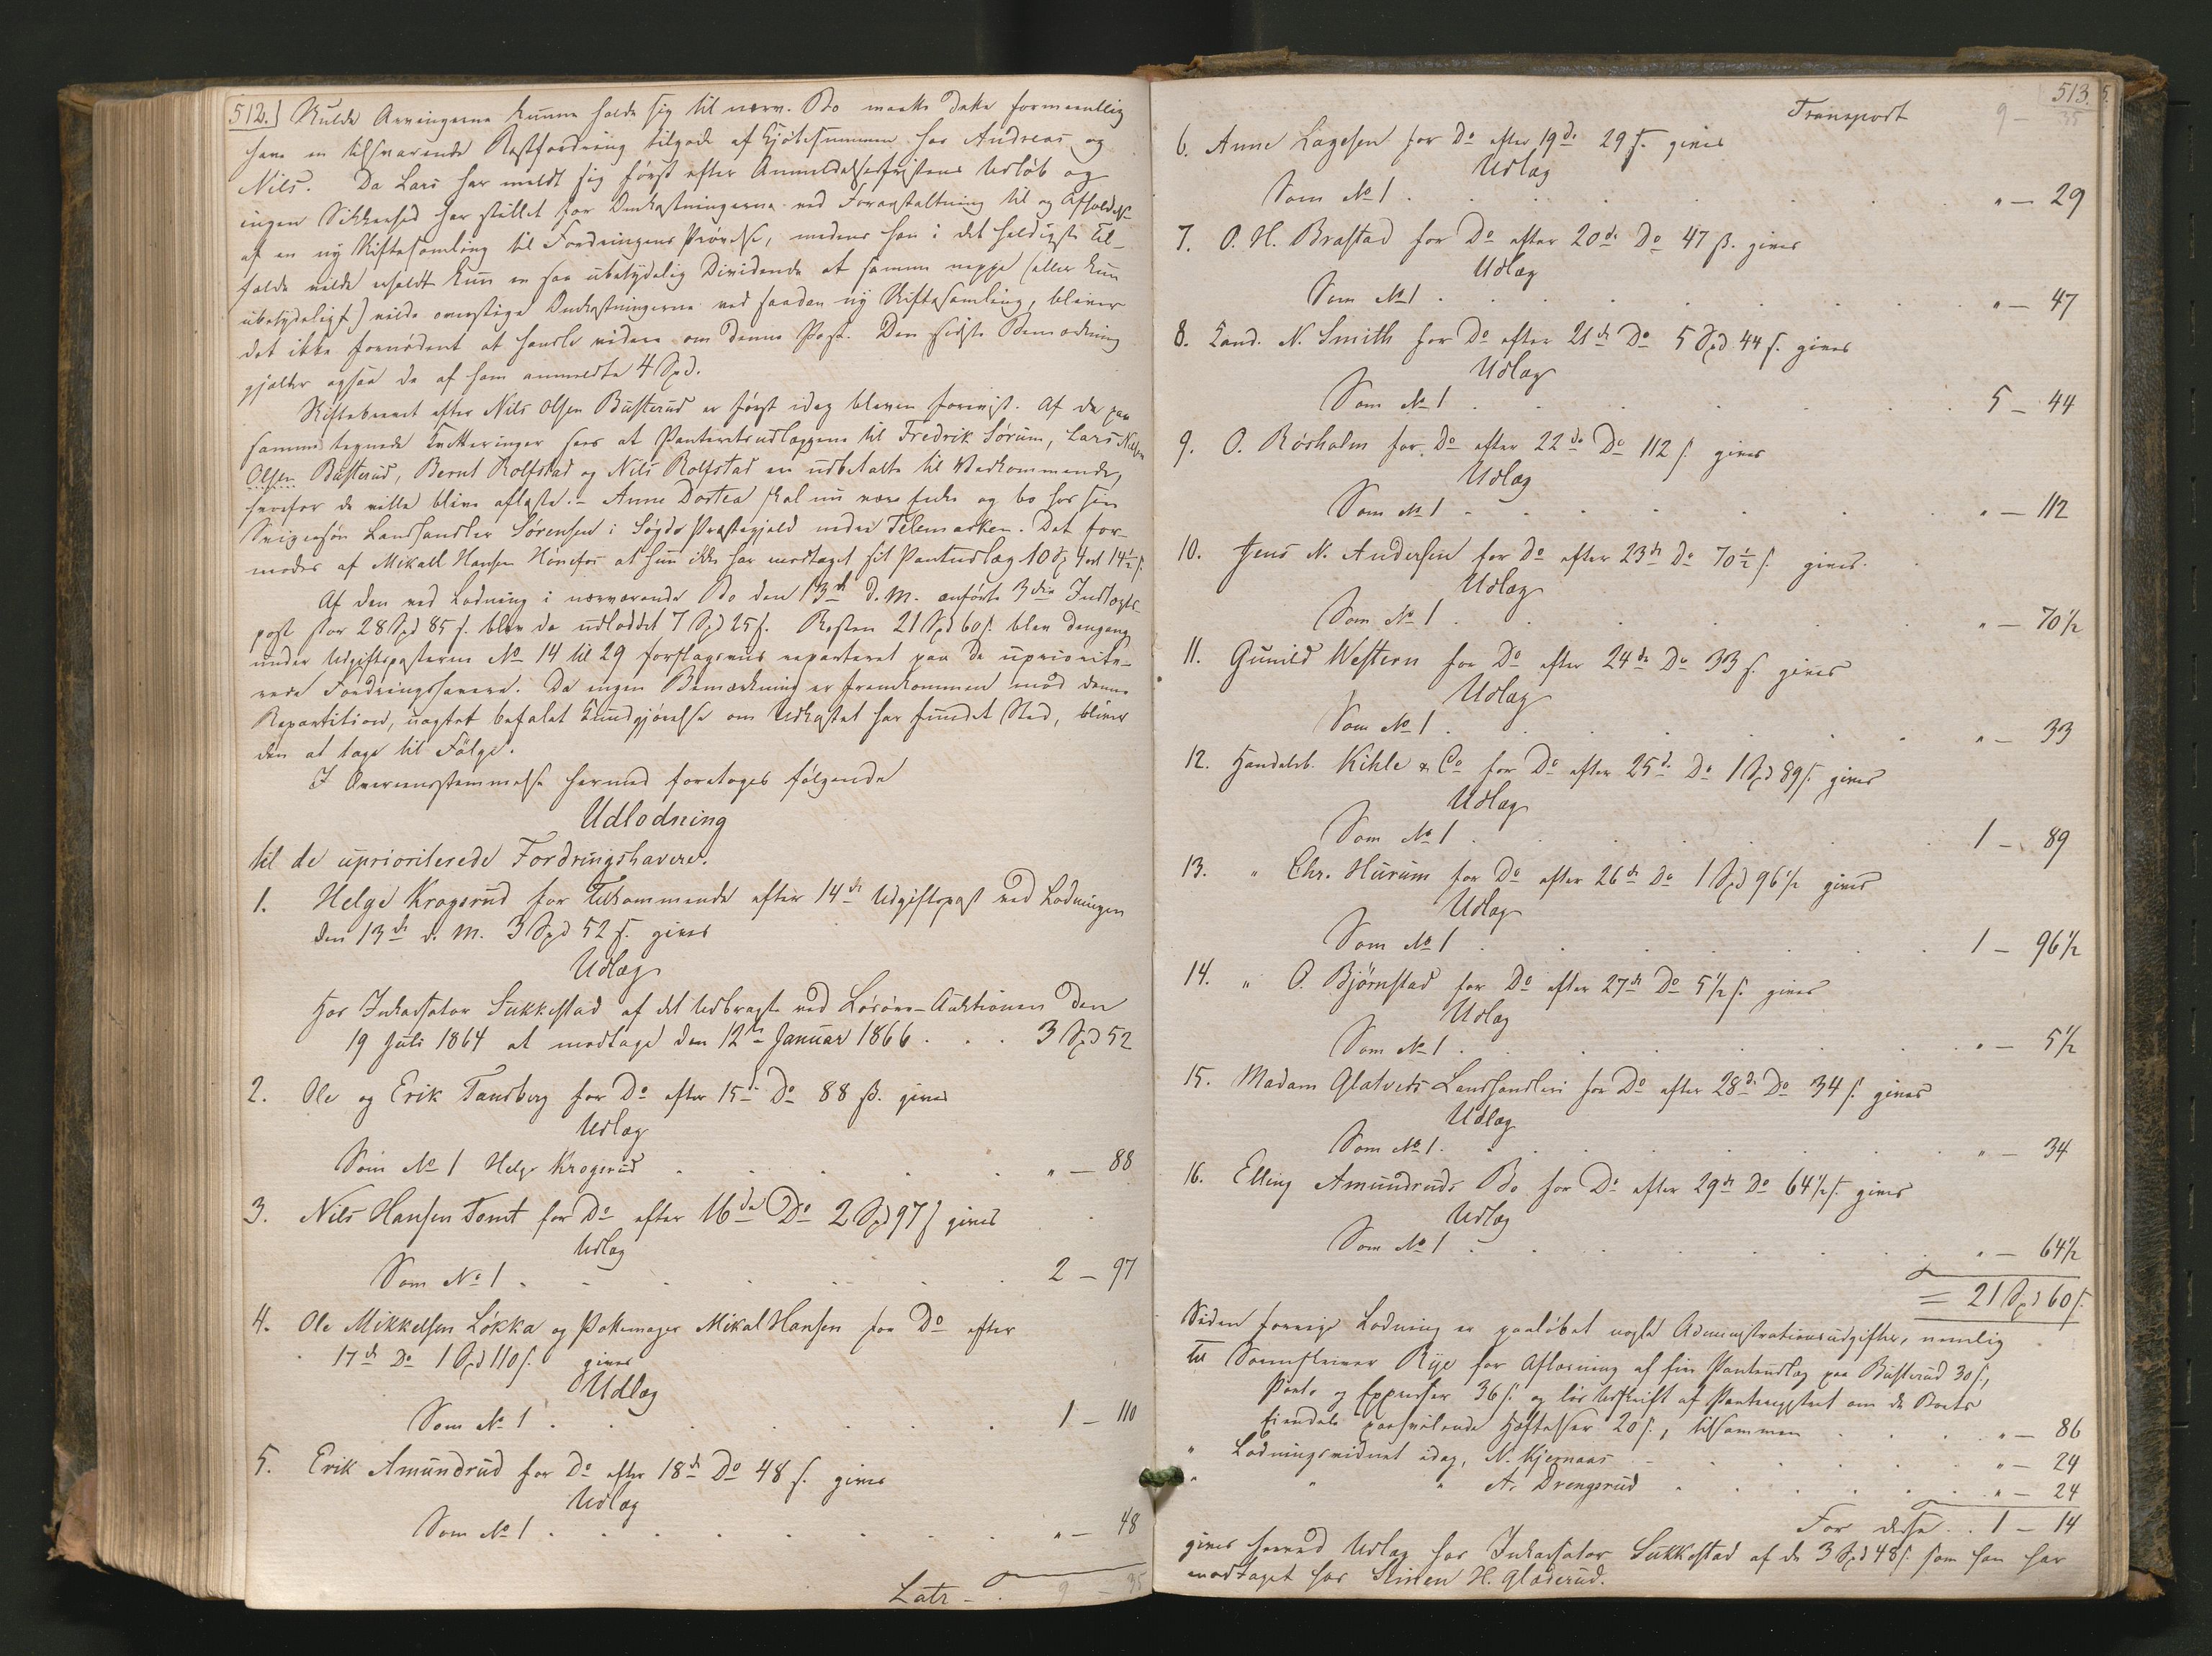 512.] Skulde Arvingerne kunne holde sig til nærv. Bo maatte dette formeentlig
have en tilsvarende Restfordring tilgode af Kjøbesummen hos Andreas og
Nils. Da Lars har meldt sig først efter Anmeldelsesfristens Udløb og
ingen Sikkerhed har stillet for Omkostningerne ved Foranstaltning til og Afholdelse
af en ny Skiftesamling til Fordringens Prøvelse, medens han i det heldigste Til-
fælde vilde erholdt kun en saa ubetydelig Dividende at samme neppe (eller kun
ubetydeligt) vilde overstige Omkostningerne ved saadan ny Skiftesamling, bliver
det ikke fornødent at handle videre om denne Post. Den sidste Bemærkning
gjælder ogsaa de af ham anmeldte 4 Spd.
Skiftebrevet efter Nils Olsen Busterud er først idag bleven forevist. Af de paa
samme tegnede Qvitteringer sees at Panteretsudlæggene til Fredrik Sørum, Lars Nilsen
Olsen Busterud, Bernt Rolfstad og Nils Rolfstad er udbetalte til Vedkommende,
hvorfor de ville blive aflæste. - Anne Dortea skal nu være Enke og bo hos sin
Svigersøn Landhandler Sørensen i Søgde Præstegjeld nedre Telemarken. Det for-
modes af Mikall Hansen Hønefos at hun ikke har modtaget sit Pantudlæg 10 Sp 4 ort 14½ s.
Af den ved Lodning i nærværende Bo den 13de d. M. anførte 3die Indtægts-
post stor 28 Spd 85 s. blev da udloddet 7 Spd 25 s. Resten 21 Spd 60 s. blev dengang
under Udgiftsposterne No 14 til 29 forslagsvis reparteret paa de upriorite-
rede Fordringshavere. Da ingen Bemærkning er fremkommen mod denne
Repartition, uagtet befalet Kundgjørelse om Udkastet har fundet Sted, bliver
den at tage til Følge.
I Overensstemmelse hermed foretages følgende
Udlodning
til de uprioriterede Fordringshavere.
1. Helge Krogsrud for Tilkommende efter 14de Udgiftspost ved Lodningen
den 13de d. M. 3 Spd 52 s. gives
Udlæg
Hos Inkassator Sukkestad af det Udbragte ved Løsøre-Auktionen den
19 Juli 1864 at modtage den 12te Januar 1866 . . . 3 Spd 52
2. Ole og Erik Tandberg for Do efter 15de Do 88 ß. gives
Udlæg
Som No 1 Helge Krogsrud . . . . . " — 88
3. Nils Hansen Tomt for Do efter 16de Do 2 Spd 97 s gives
Udlæg
Som No 1 . . . . . . 2 — 97
4. Ole Mikkelsen Løkka og Pottemager Mikal Hansen for Do efter
17de Do 1 Spd 110 s. gives
Udlæg
Som No 1 . . . . . . 1 — 110
5. Erik Amundrud for Do efter 18de Do 48 s. gives
Udlæg
Som No 1 . . . . . . " — 48
Latr . . 9 — 35
513.
Transport 9 — 35
6. Anne Lagesen for Do efter 19de 29 s. gives
Udlæg
Som No 1 . . . . . . " — 29
7. O. H. Brastad for Do efter 20de Do 47 ß. gives
Udlæg
Som No 1 . . . . . . " — 47
8. Cand. N. Smith for Do efter 21de Do 5 Spd 44 s. gives
Udlæg
Som No 1 . . . . . . 5 — 44
9. O. Røsholm for Do efter 22de Do 112 s gives
Udlæg
Som No 1 . . . . . . " — 112
10. Jens N. Andersen for Do efter 23de Do 70½ s. gives.
Udlæg
Som No 1 . . . . . . " — 70½
11. Gunild Western for Do efter 24de Do 33 s. gives
Udlæg
Som No 1 . . . . . . " — 33
12. Handelsb. Kihle & Co for Do efter 25de Do 1 Spd 89 s. gives
Udlæg
Som No 1 . . . . . . 1 — 89
13. " Chr. Hurum for Do efter 26de Do 1 Spd 96½ gives
Udlæg
Som No 1 . . . . . . 1 — 96½
14. " O. Bjørnstad for Do efter 27de Do 5½ s. gives
Udlæg
Som No 1 . . . . . . " — 5½
15. Madam Glatveds Landhandleri for Do efter 28de Do 34 s. gives
Udlæg
Som No 1 . . . . . . " — 34
16. Elling Amundruds Bo for Do efter 29de Do 64½ s. gives
Udlæg
Som No 1 . . . . . . " — 64½
= 21 Spd 60 s.
Siden forrige Lodning er paaløbet nogle Administrationsudgifter, nemlig
Til Sorenskriver Rye for Aflæsning af fire Pantudlæg paa Busterud 30 s,
Porto og Expresser 36 s. og løs Udskrift af Panteregistret om de Boets
Eiendele paahvilende Hæftelser 20 s., tilsammen . . . " — 86
" Lodningsvidnet idag, N. Kjernaas . . . . . " — 24
" " " A. Drengsrud . . . . . " — 24
For disse . . 1 — 14
gives herved Udlæg hos Inkassator Sukkestad af de 3 Spd 48 s. som han har
modtaget hos Stinen H. Gladerud.